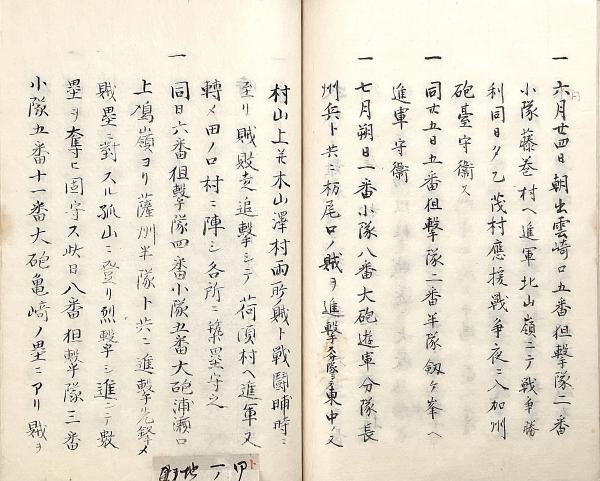 一六月廿四日朝出雲崎口五番狙撃隊二番
小隊藤巻村ヘ進軍北山嶺ニテ戦争勝
利同日夕乙茂村應援戦争夜ニ入加州
砲臺守衞ス
一同廿五日五番狙撃隊二番半隊釼ケ峯ヘ
進軍守衞
一七月朔日一番小隊八番大砲遊軍分隊長
州兵ト共ニ栃尾口ノ賊ヲ進撃分隊ニ東中又
村山上ヒ木山澤村兩所ノ賊ト戦鬪晡時ニ
至リ賊敗走追撃シテ荷頃村ヘ進軍又
轉メ田ノ口村ニ陣シ各所ニ築塁守之
一同日六番狙撃隊四番小隊五番大砲浦瀬口
上鳰嶺ヨリ薩州半隊ト共ニ進撃先鋒〆
賊塁ニ對スル孤山ニ登リ烈撃シ進ンテ敷
塁ヲ奪ヒ固守ス此日八番狙撃隊三番
小隊五番十一番大砲亀﨑ノ塁ニアリ賊ヲ